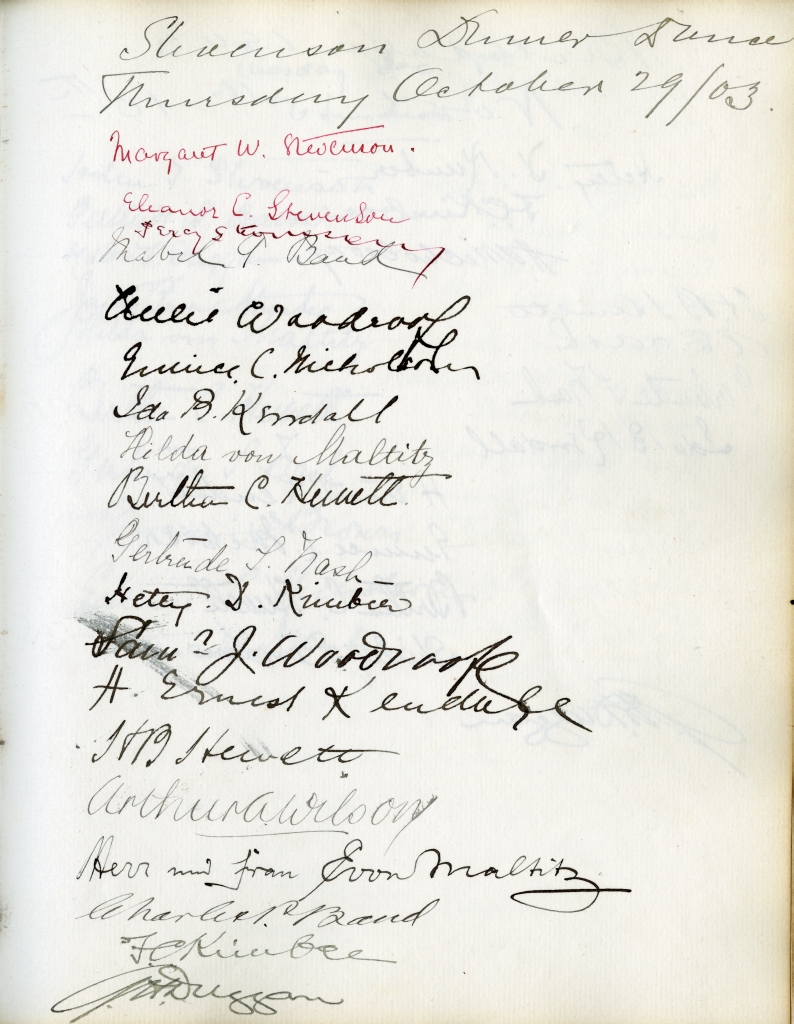 Stevenson Dinner Dance
Thursday October 29/03.
Margaret W. Stevenson.
Eleanor C. Stevenson
Percy
Mabel G. Band
Nellie Woodroofe
Eunice C. Nicholson
Ida B. Kendall
Hilda von Maltitz
Bertha C. Hewett.
Gertrude S. Nash
Hetty. D. Kimber
Sam'l J. Woodroofe
H. Ernest Kendall
HB Hewett
Arthur A Wilson
Herr und Frau E von Maltitz
Charles P Band
F. C Kimber
Duggan